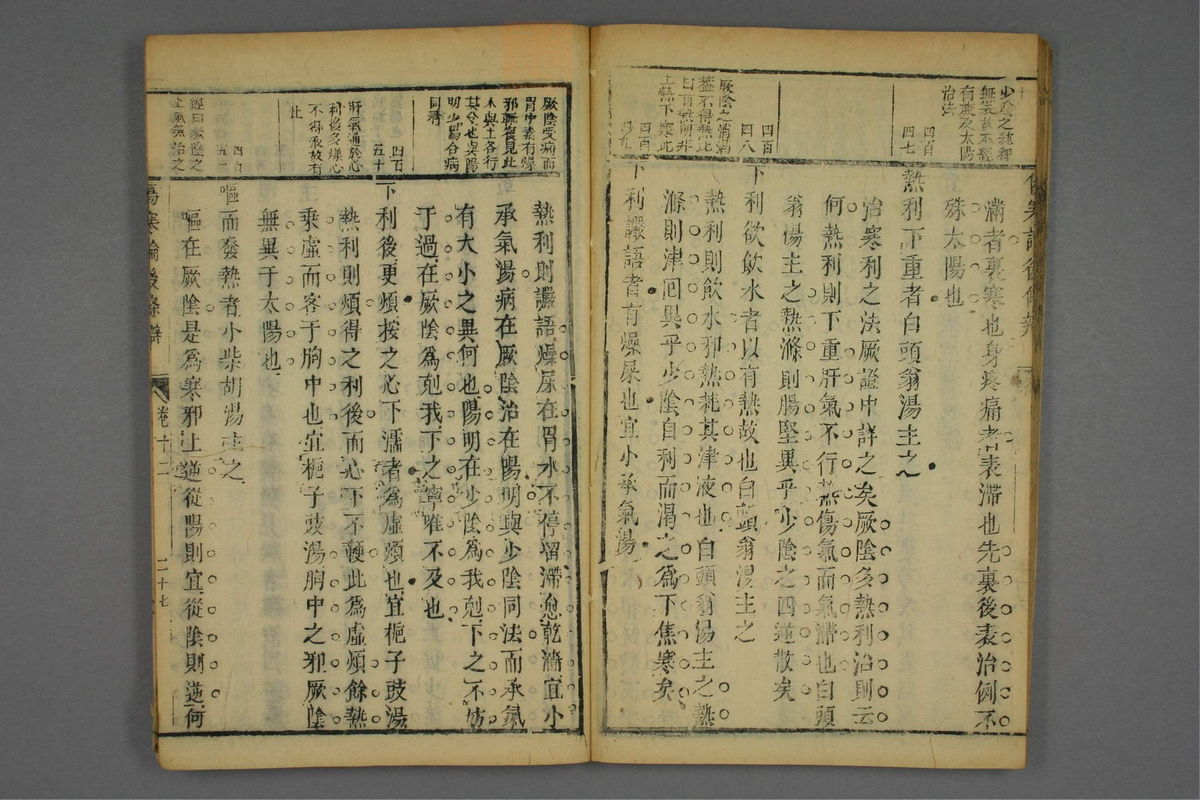 滿者裏寒也身疼痛者表滯也先裏後表治例不
殊太陽也
熱利下重者白頭翁湯主之
治寒利之法厥證中詳之矣厥陰多熱利治則云
何熱利則下重肝氣不行熱傷氣而氣滯也白頭
翁湯主之熱滌則腸堅異乎少陰之四逆散矣
下利欲飲水者以有熱故也白頭翁湯主之
熱利則飲水邪熱耗其津液也白頭翁湯主之熱
滌則津回異乎少陰自利而渴之為下焦寒矣
下利讝語者有燥屎也宜小承氣湯
少陰之
四百
四七
四百
四八
厥陰之消渴
四百
四九
熱利則讝語燥屎在胃水不停留滯愈乾滴宜小
承氣湯病在厥陰治在陽明與少陰同法而承氣
有大小之異何也陽明在少陰為我剋下之不妨
于過在厥陰為剋我下之寧唯不及也
下利後更煩按之心下濡者為虛煩也宜梔子豉湯
熱利則煩得之利後而心下不鞕此為虛煩餘熱
乘虛而客于胸中也宜梔子豉湯胸中之邪厥陰
無異于太陽也
嘔而發熱者小柴胡湯主之
嘔在厥陰是為寒邪上逆從陽則宜從陰則逆何
厥陰受病而
胃中素有燥
邪輒復見此
木與土各行
其令也與陽
明少陽合病
同看
四百
五十
肝氣通於心
利後多燥心
不得承故有
此
四百
經曰厥陰之
上氣治之
傷寒論後條辯
卷十二
二十七